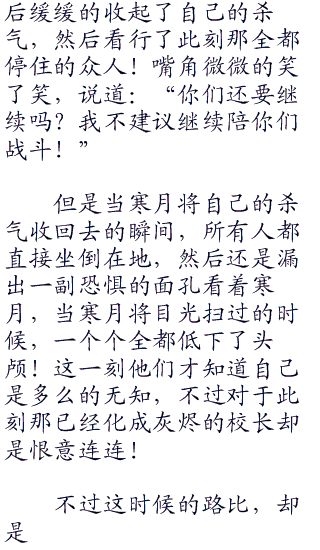 后缓缓的收起了自己的杀
气，然后看行了此刻那全都
停住的众人！嘴角微微的笑
了笑，说道：“你们还要继
续吗？我不建议继续陪你们
战斗！”
但是当寒月将自己的杀
气收回去的瞬间，所有人都
直接坐倒在地，然后还是漏
出一副恐惧的面孔看着寒
月，当寒月将目光扫过的时
候，一个个全都低下了头
颅！这一刻他们才知道自己
是多么的无知，不过对于此
刻那已经化成灰烬的校长却
是恨意连连！
不过这时候的路比，却
是